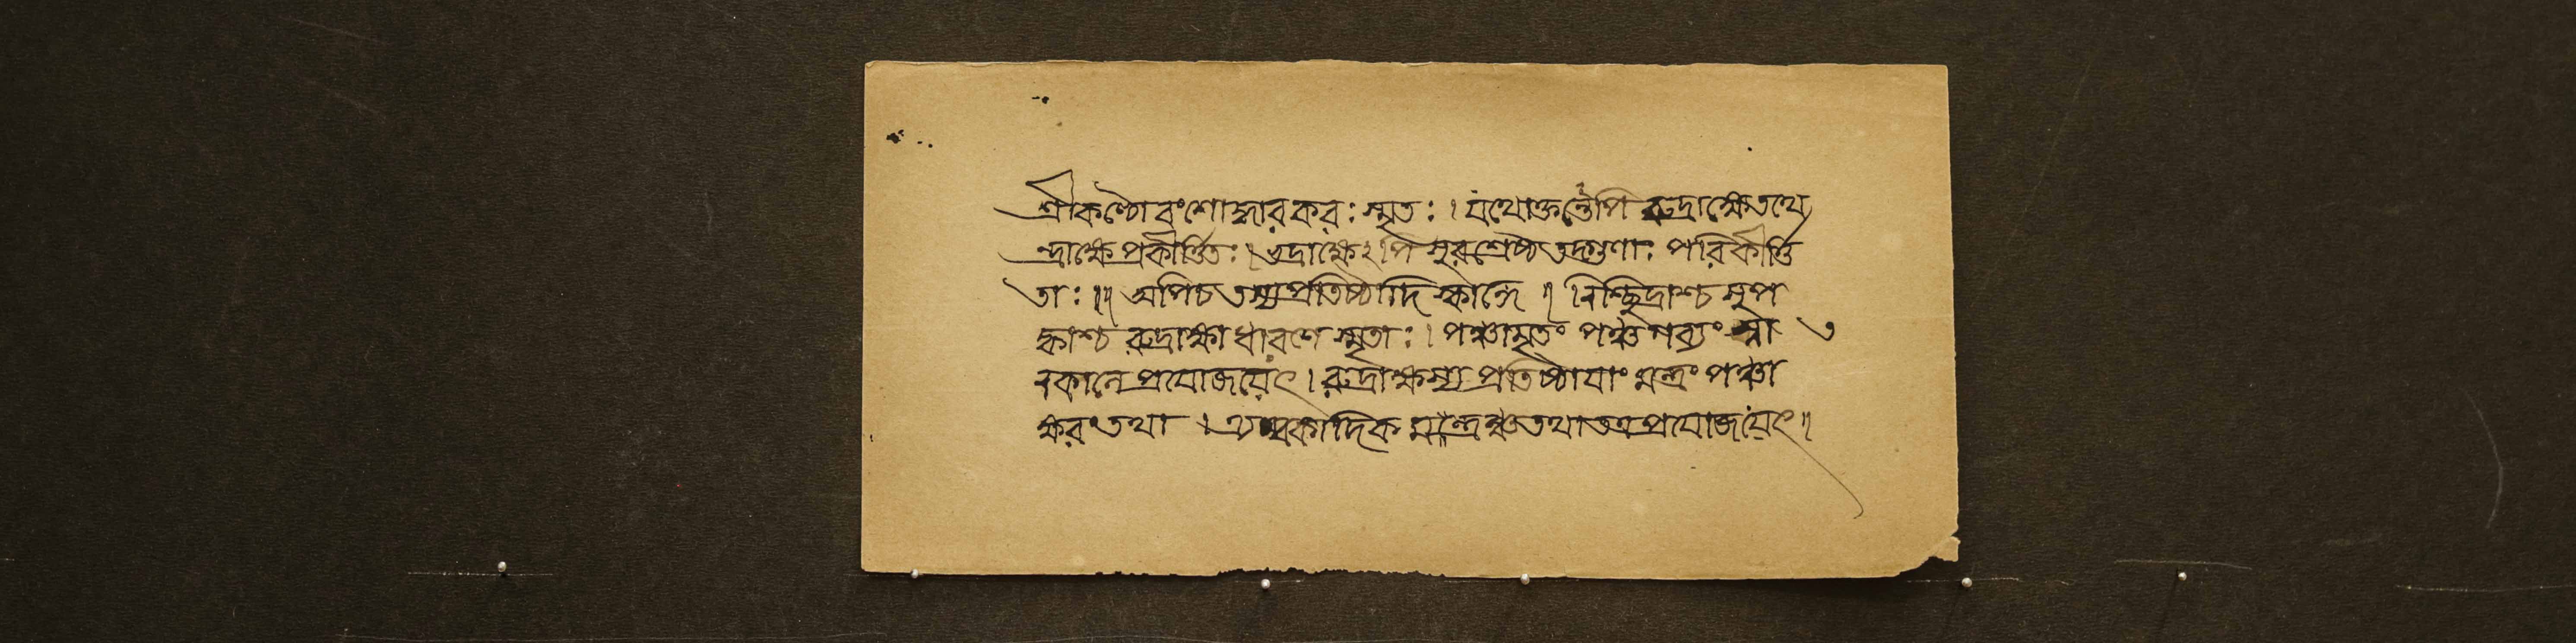 শ্রীকণ্ঠো বংশোদ্ধারকরঃ স্মৃতঃ । যথোক্তন্তেপি রুদ্রাক্ষে তথে
ন্দ্রাক্ষে প্রকীর্ত্তিতঃ । ভদ্রাক্ষেঽপি সুরশ্রেষ্ঠ তদ্গুণাঃ পরিকীর্ত্তি
তাঃ ॥ অপিচ তস্যপ্রতিষ্ঠাদি স্কান্দে ॥ নিশ্ছিদ্রাশ্চ সুপ
ক্বাশ্চ রুদ্রাক্ষা ধারণে স্মৃতাঃ । পঞ্চামৃতং পঞ্চগব্যং স্না
নকালে প্রযোজয়েৎ । রুদ্রাক্ষস্য প্রতিষ্ঠাযাং মন্ত্রং পঞ্চা
ক্ষরং তথা । ত্র্যম্বকাদিক মন্ত্রঞ্চ তথা তত্র প্রযোজয়েৎ ॥